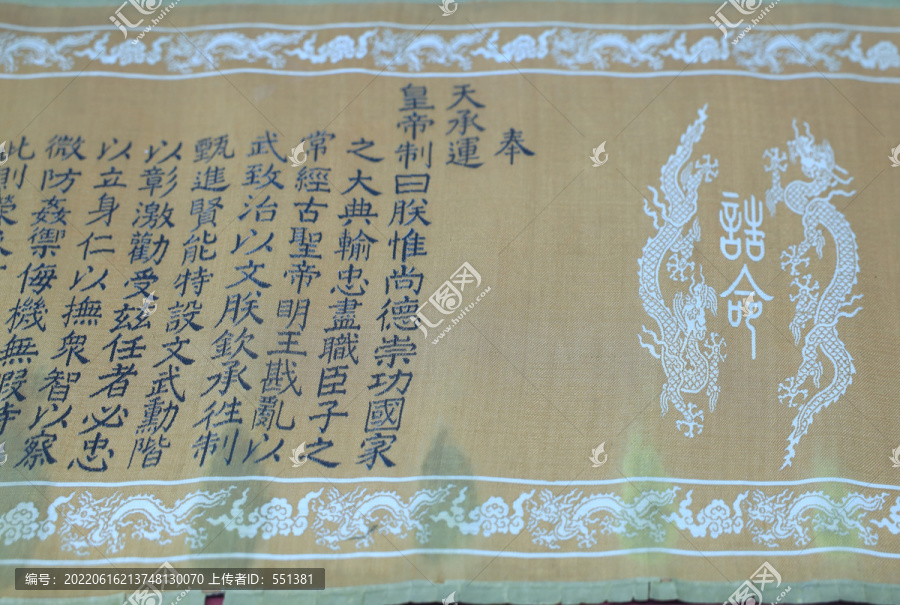 誥命
奉
天承運
皇帝制曰朕惟尚德崇功國家
之大典輸忠盡職臣子之
常經古聖帝明王戡亂以
武致治以文朕欽承往制
甄進賢能特設文武勳階
以彰激勸受茲任者必忠
以立身仁以撫衆智以察
微防姦禦侮機無暇時
此則榮
编号：20220616213748130070 上传者ID：551381
汇图网
www.huitu.com